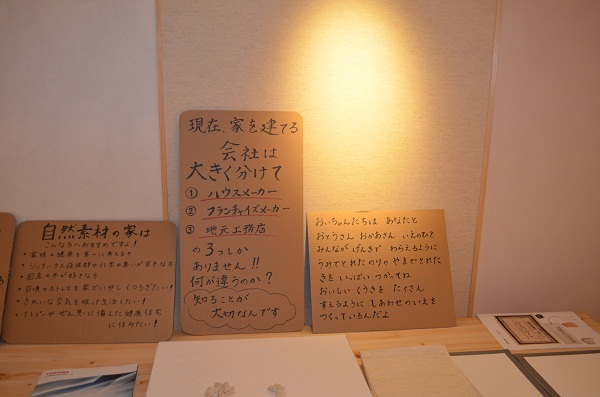 自然素材の家は
こんな方へおすすめですよ!
・家族の健康を第一に考える方
・国産の木が好きな方
・日頃のストレスを家でいやしくつろぎたい!
・きれいな空気を吸って生活したい!
・アトピーやぜん息に備えた健康住宅
に住みたい!
現在、家を建てる
会社は
大きく分けて
① ハウスメーカー
② フランチャイズメーカー
③ 地元工務店
の3つしか
ありません!!
何が違うのか?
知ることが
大切なんです
おいちゃんたちは あなたと
おとうさん おかあさん いえのひと
みんなが げんきで わらえるように
うみでとれた のりや やまでとれた
きを いっぱい つかってね
おいしい くうきを たくさん
すえるように しあわせの いえを
つくっているんだよ